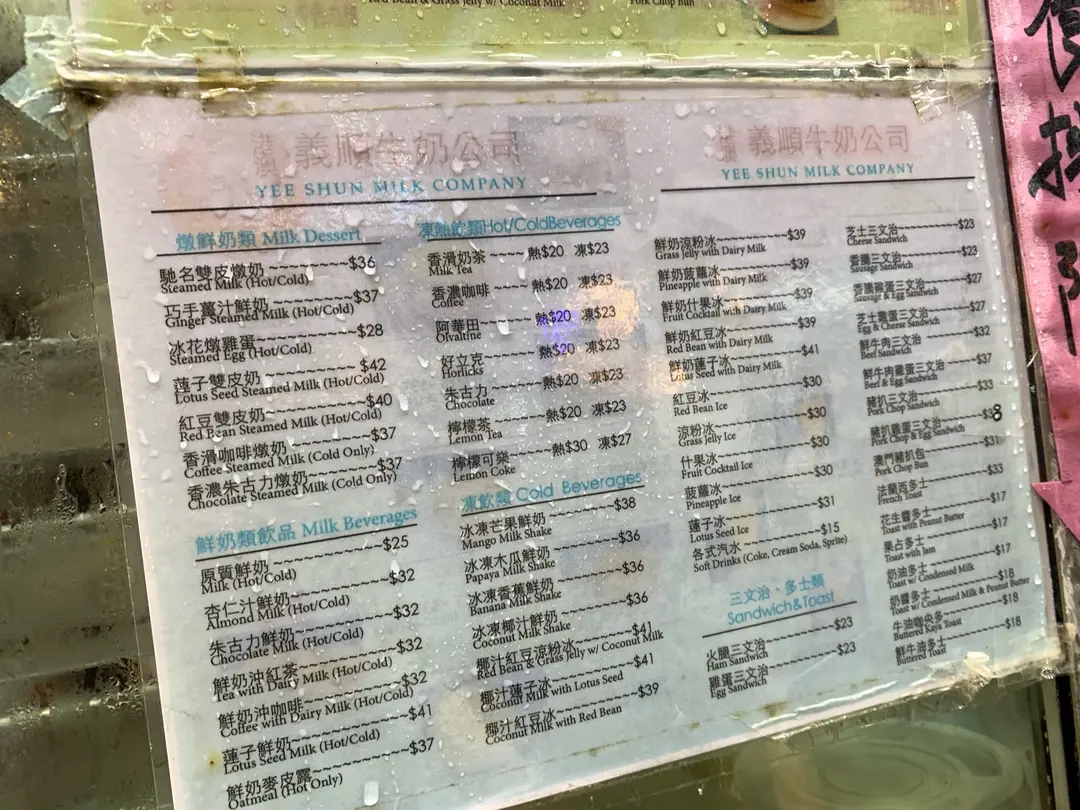 Red Bean & Grass Jelly w/ Coconut Milk
Pork Chop Bun
義順牛奶公司
YEE SHUN MILK COMPANY
燉鮮奶類 Milk Dessert
馳名雙皮燉奶~~~~~~~~$36
Steamed Milk (Hot/Cold)
巧手薑汁鮮奶~~~~~~~~$37
Ginger Steamed Milk (Hot/Cold)
冰花燉雞蛋~~~~~~~~$28
Steamed Egg (Hot/Cold)
蓮子雙皮奶~~~~~~~~$42
Lotus Seed Steamed Milk (Hot/Cold)
紅豆雙皮奶~~~~~~~~$40
Red Bean Steamed Milk (Hot/Cold)
香滑咖啡燉奶~~~~~~~~$37
Coffee Steamed Milk (Cold Only)
香濃朱古力燉奶~~~~~~$37
Chocolate Steamed Milk (Cold Only)
鮮奶類飲品 Milk Beverages
原質鮮奶~~~~~~~~$25
Milk (Hot/Cold)
杏仁汁鮮奶~~~~~~~~$32
Almond Milk (Hot/Cold)
朱古力鮮奶~~~~~~~~$32
Chocolate Milk (Hot/Cold)
鮮奶沖紅茶~~~~~~~~$32
Tea with Dairy Milk (Hot/Cold)
鮮奶沖咖啡~~~~~~~~$32
Coffee with Dairy Milk (Hot/Cold)
蓮子鮮奶~~~~~~~~$41
Lotus Seed Milk (Hot/Cold)
鮮奶麥皮露~~~~~~~~$37
Oatmeal (Hot Only)
凍熱飲類Hot/ColdBeverages
香滑奶茶~~~~熱$20 凍$23
Milk Tea
香濃咖啡~~~~熱$20 凍$23
Coffee
阿華田~~~~~~熱$20 凍$23
Ovaltine
好立克~~~~~~熱$20 凍$23
Horlicks
朱古力~~~~~~熱$20 凍$23
Chocolate
檸檬茶~~~~~~熱$20 凍$23
Lemon Tea
檸檬可樂~~~~熱$30 凍$27
Lemon Coke
凍飲類 Cold Beverages
冰凍芒果鮮奶~~~~~~~~$38
Mango Milk Shake
冰凍木瓜鮮奶~~~~~~~~$36
Papaya Milk Shake
冰凍香蕉鮮奶~~~~~~~~$36
Banana Milk Shake
冰凍椰汁鮮奶~~~~~~~~$36
Coconut Milk Shake
椰汁紅豆涼粉冰~~~~~~$41
Red Bean & Grass Jelly w/ Coconut Milk
椰汁蓮子冰~~~~~~~~$41
Coconut Milk with Lotus Seed
椰汁紅豆冰~~~~~~~~$39
Coconut Milk with Red Bean
義順牛奶公司
YEE SHUN MILK COMPANY
鮮奶涼粉冰~~~~~~~~$39
Grass Jelly with Dairy Milk
鮮奶菠蘿冰~~~~~~~~$39
Pineapple with Dairy Milk
鮮奶什果冰~~~~~~~~$39
Fruit Cocktail with Dairy Milk
鮮奶紅豆冰~~~~~~~~$39
Red Bean with Dairy Milk
鮮奶蓮子冰~~~~~~~~$41
Lotus Seed with Dairy Milk
紅豆冰~~~~~~~~$30
Red Bean Ice
涼粉冰~~~~~~~~$30
Grass Jelly Ice
什果冰~~~~~~~~$30
Fruit Cocktail Ice
菠蘿冰~~~~~~~~$30
Pineapple Ice
蓮子冰~~~~~~~~$31
Lotus Seed Ice
各式汽水~~~~~~~~$15
Soft Drinks (Coke, Cream Soda, Sprite)
三文治、多士類
Sandwich&Toast
火腿三文治~~~~~~~~$23
Ham Sandwich
雞蛋三文治~~~~~~~~$23
Egg Sandwich
芝士三文治~~~~~~~~$23
Cheese Sandwich
香腸三文治~~~~~~~~$23
Sausage Sandwich
香腸雞蛋三文治~~~~~~$27
Sausage & Egg Sandwich
芝士雞蛋三文治~~~~~~$27
Egg & Cheese Sandwich
鮮牛肉三文治~~~~~~~~$32
Beef Sandwich
鮮牛肉雞蛋三文治~~~~$37
Beef & Egg Sandwich
豬扒三文治~~~~~~~~$33
Pork Chop Sandwich
豬扒雞蛋三文治~~~~~~$38
Pork Chop & Egg Sandwich
澳門豬扒包~~~~~~~~$31
Pork Chop Bun
法蘭西多士~~~~~~~~$33
French Toast
花生醬多士~~~~~~~~$17
Toast with Peanut Butter
果占多士~~~~~~~~$17
Toast with Jam
奶油多士~~~~~~~~$17
Toast w/ Condensed Milk
奶醬多士~~~~~~~~$18
Toast w/ Condensed Milk & Peanut Butter
牛油咖央多~~~~~~~~$18
Buttered Kaya Toast
鮮牛油多士~~~~~~~~$18
Buttered Toast